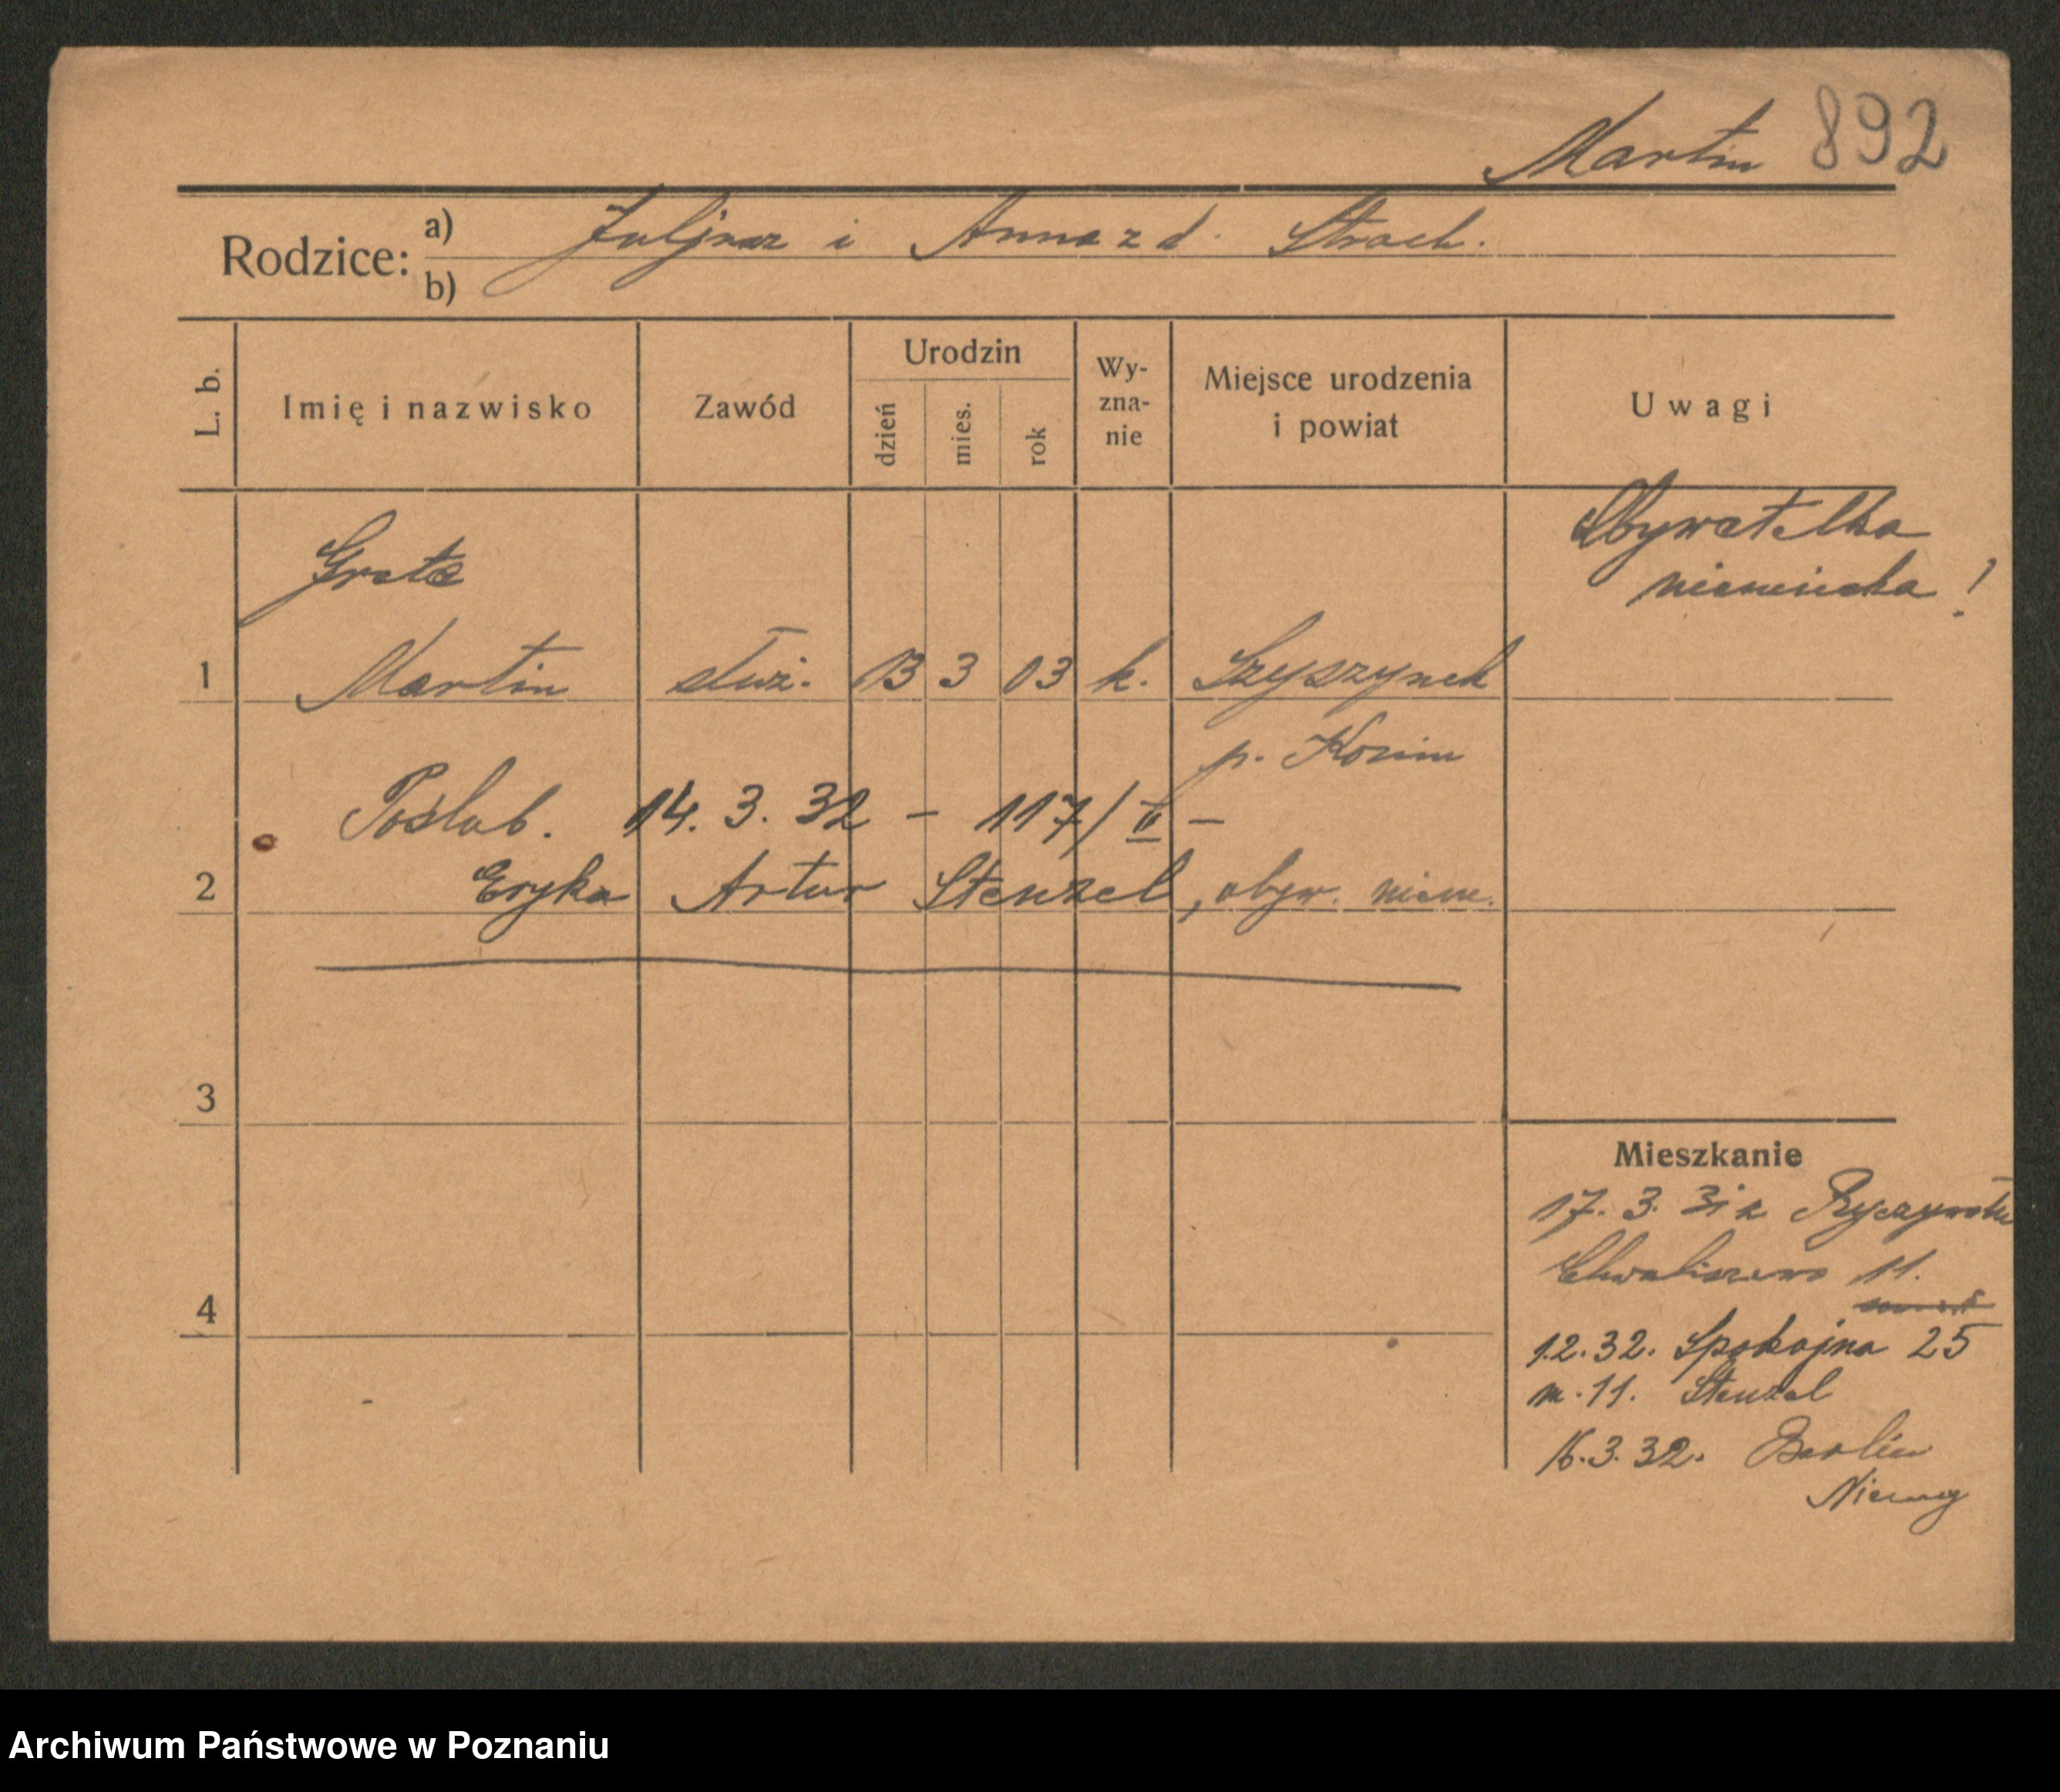 Martin 892
Rodzice: a) Juljusz i Anna z d. Strach.
b)
L. b. Imię i nazwisko Zawód Urodzin dzień mies. rok Wyznanie Miejsce urodzenia i powiat Uwagi
Obywatelka
niemiecka!
Greta
1 Martin służ. 13 3 03 k. Szyszynek
p. Konin
Poślub. 14. 3. 32 – 117/II –
2 Eryka Artur Stenzel, obyw. niem.
3
4
Mieszkanie
17. 3. 31 z Ryczywołu
Chwaliszewo 11.
1.2.32. Spokojna 25
m. 11. Stenzel
16.3.32. Berlin
Niemcy
Archiwum Państwowe w Poznaniu